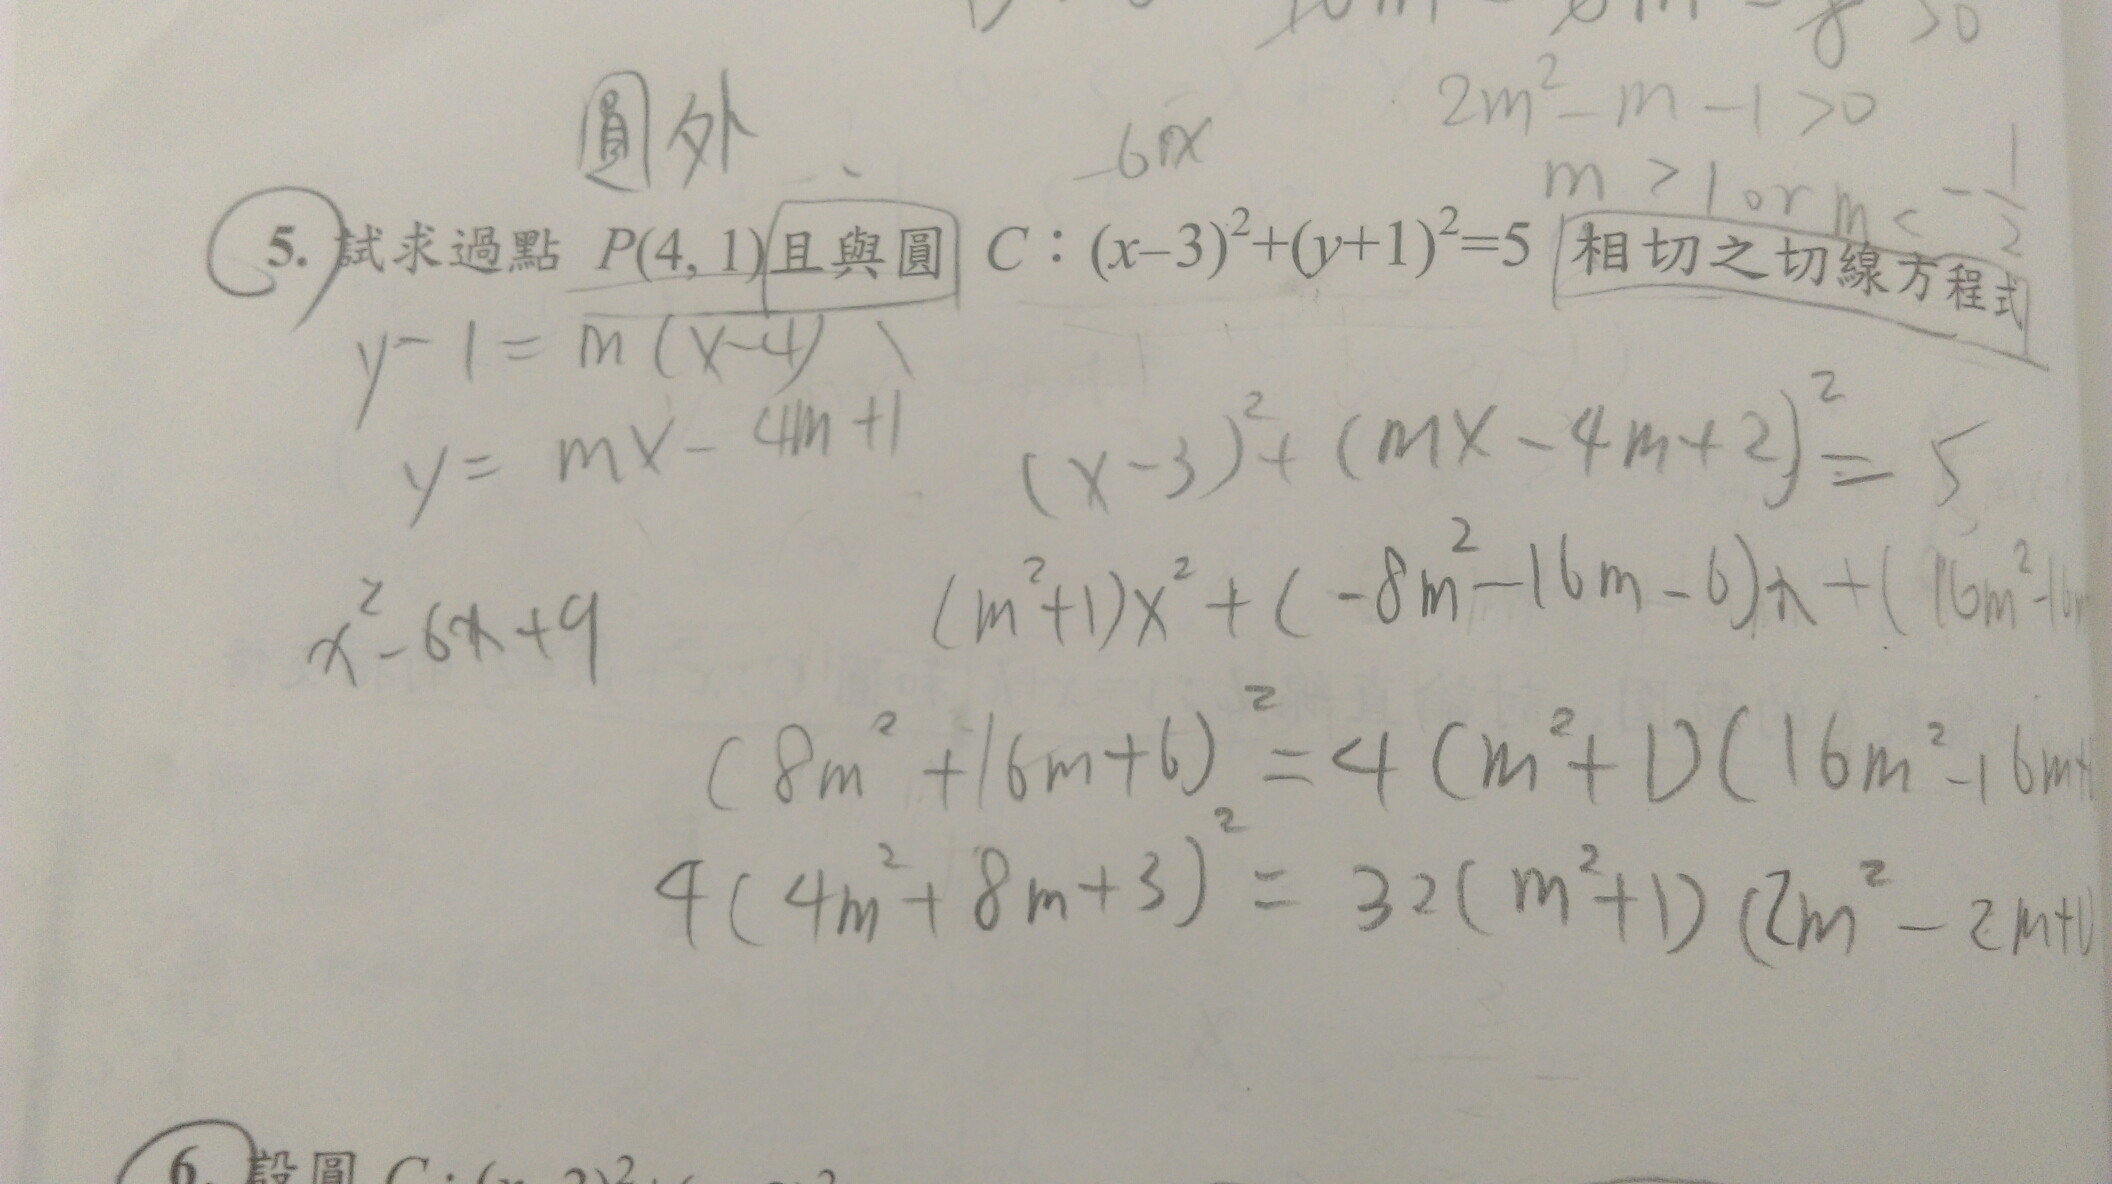 2m²-m-1>0
圓外
-6x
m>1 or m<-1/2
5. 試求過點 P(4, 1)且與圓 C：(x–3)²+(y+1)²=5 相切之切線方程式
y-1=m(x-4)
y=mx-4m+1
(x-3)²+(mx-4m+2)²=5
(m²+1)x²+(-8m²-16m-6)x+(16m²-16m
x²-6x+9
(8m²+16m+6)²=4(m²+1)(16m²-16m+
4(4m²+8m+3)²=32(m²+1)(2m²-2m+1)
6. 設圓 C: